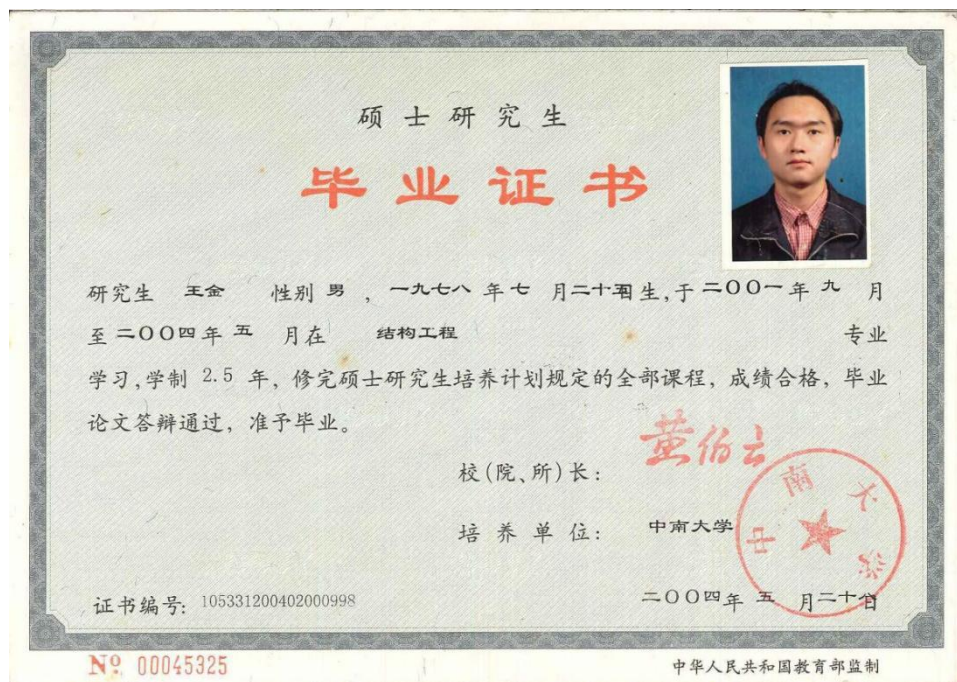 硕士研究生
毕业证书
研究生 王金 性别 男 ，一九七八 年 七 月二十五日生,于 二〇〇一 年 九 月
至 二〇〇四 年 五 月在 结构工程 专业
学习,学制 2.5 年，修完硕士研究生培养计划规定的全部课程，成绩合格，毕业
论文答辩通过，准予毕业。
黄伯云
校(院、所)长：
培养单位： 中南大学
中南大学
证书编号: 105331200402000998
二〇〇四年 五 月二十六日
№ 00045325
中华人民共和国教育部监制